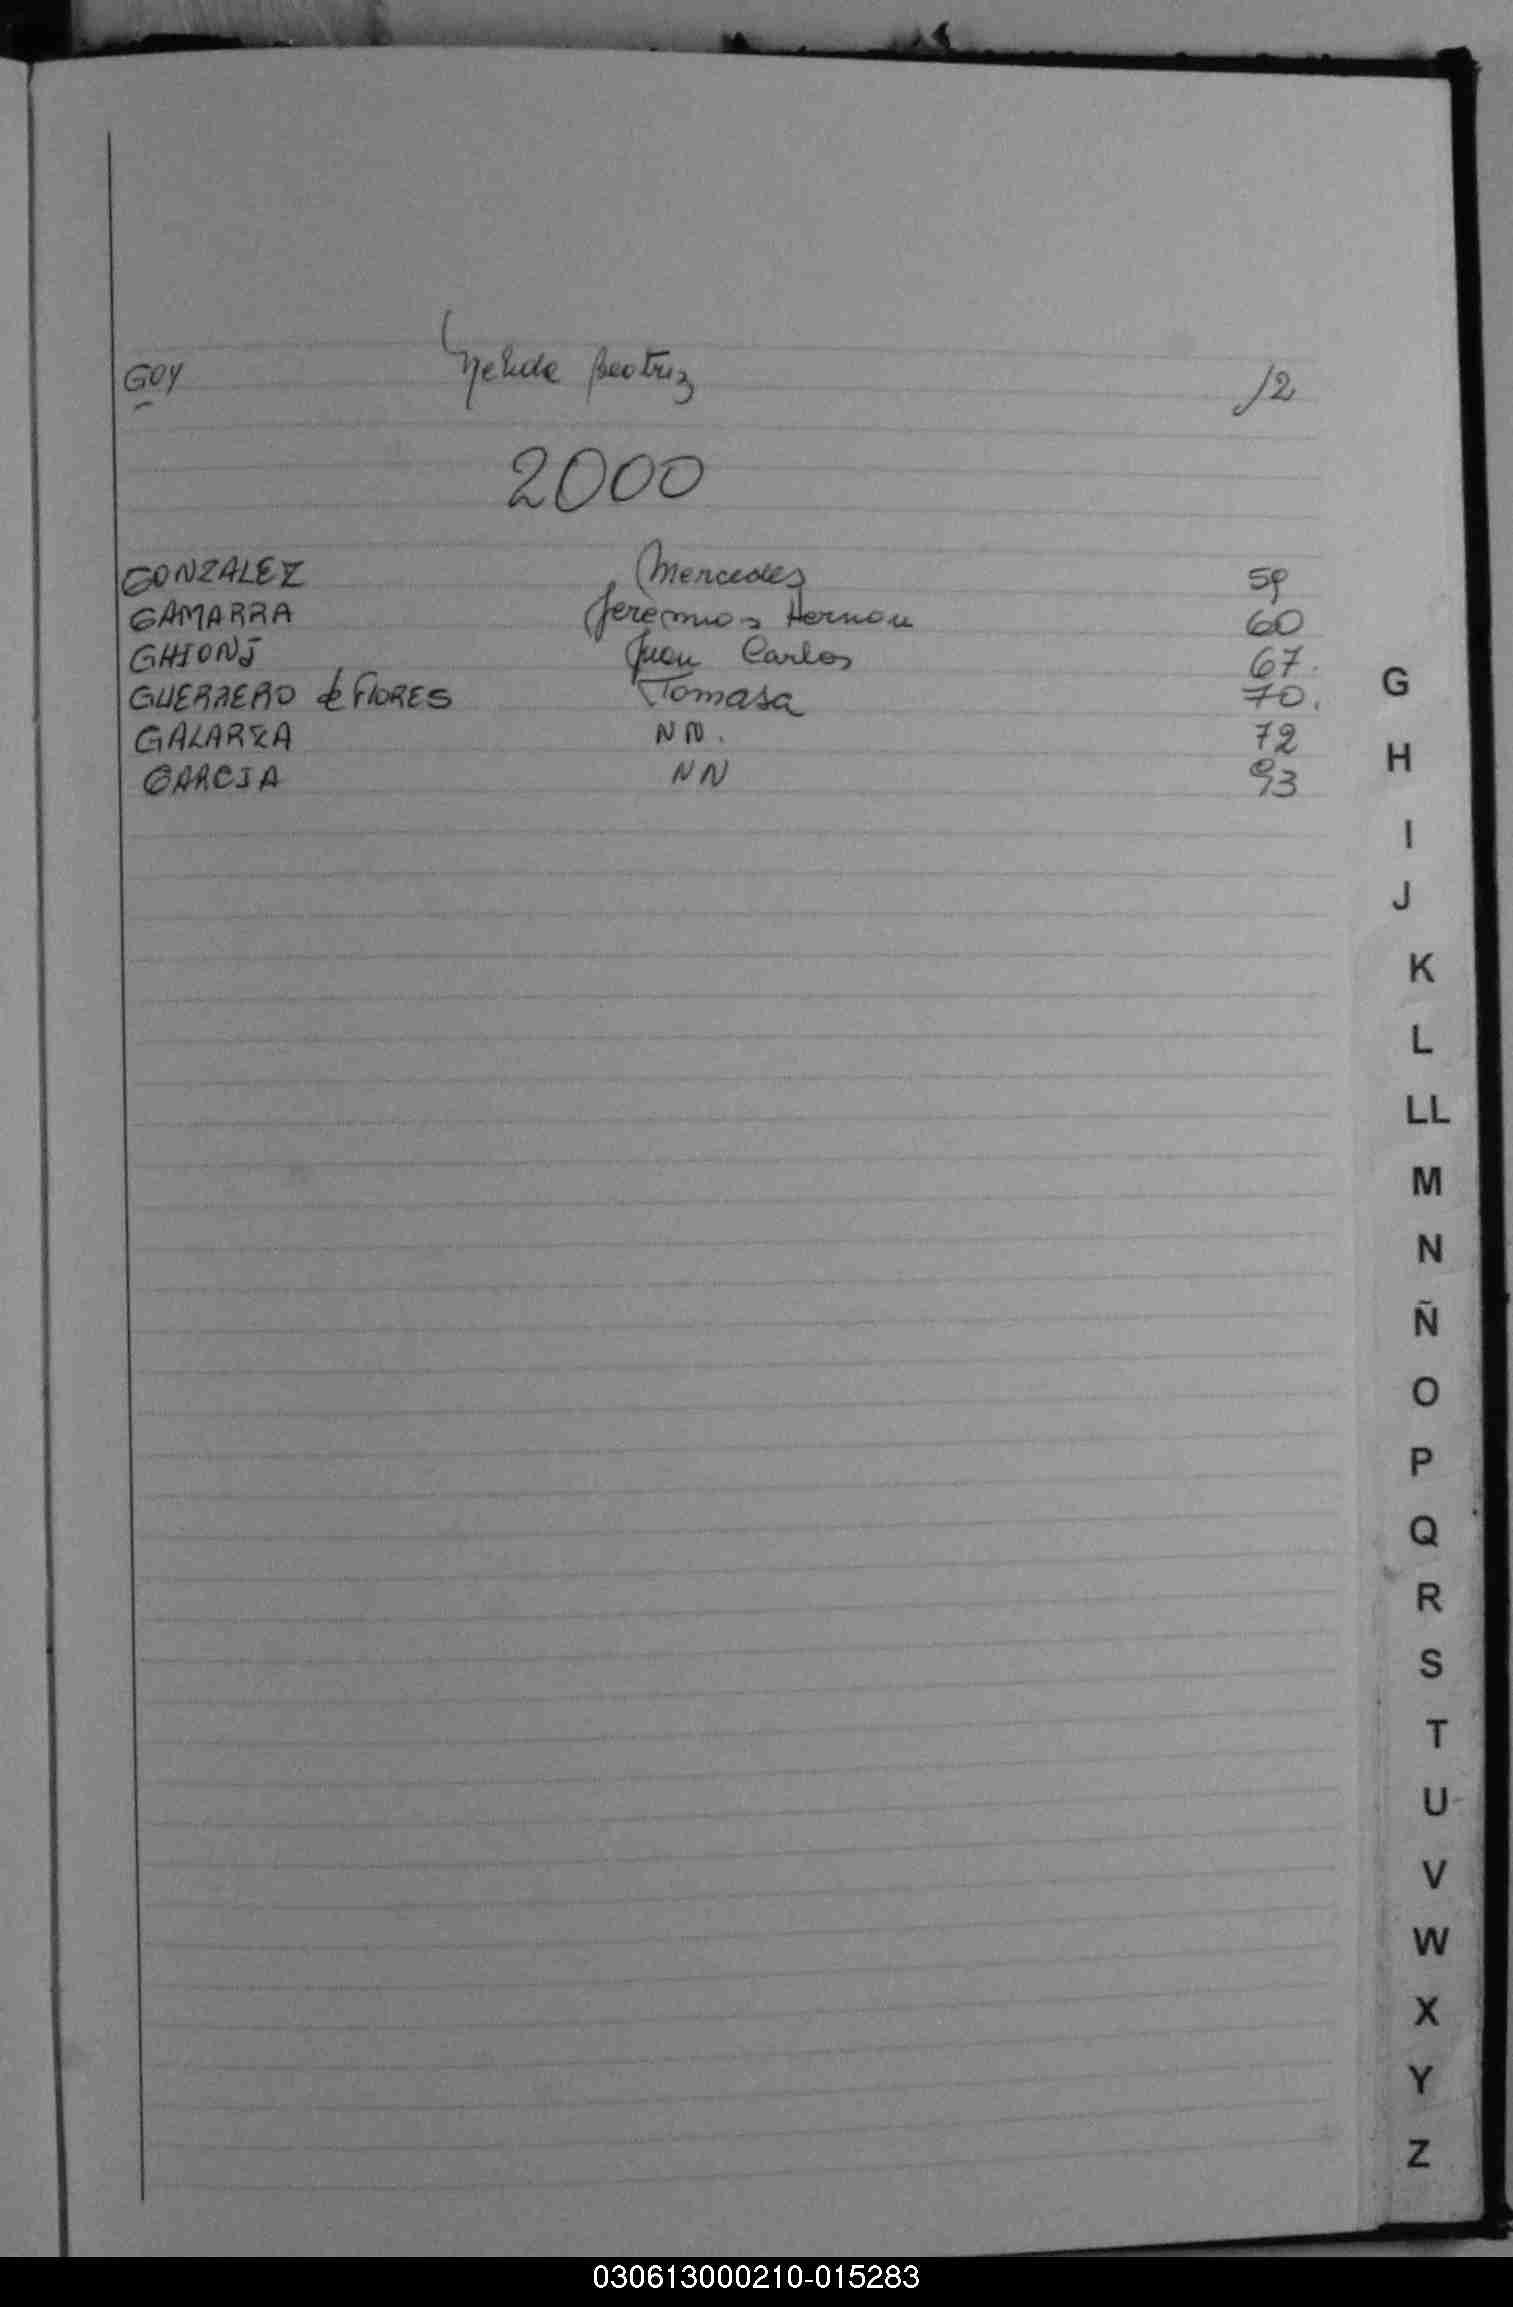 GOY Nelida Beatriz 12
2000
GONZALEZ Mercedes 59
GAMARRA Jeremias Hernan 60
GHIONI Juan Carlos 67.
GUERRERO de FLORES Tomasa 70.
GALARZA NN. 72
GARCIA NN 93
G
H
I
J
K
L
LL
M
N
Ñ
O
P
Q
R
S
T
U
V
W
X
Y
Z
030613000210-015283